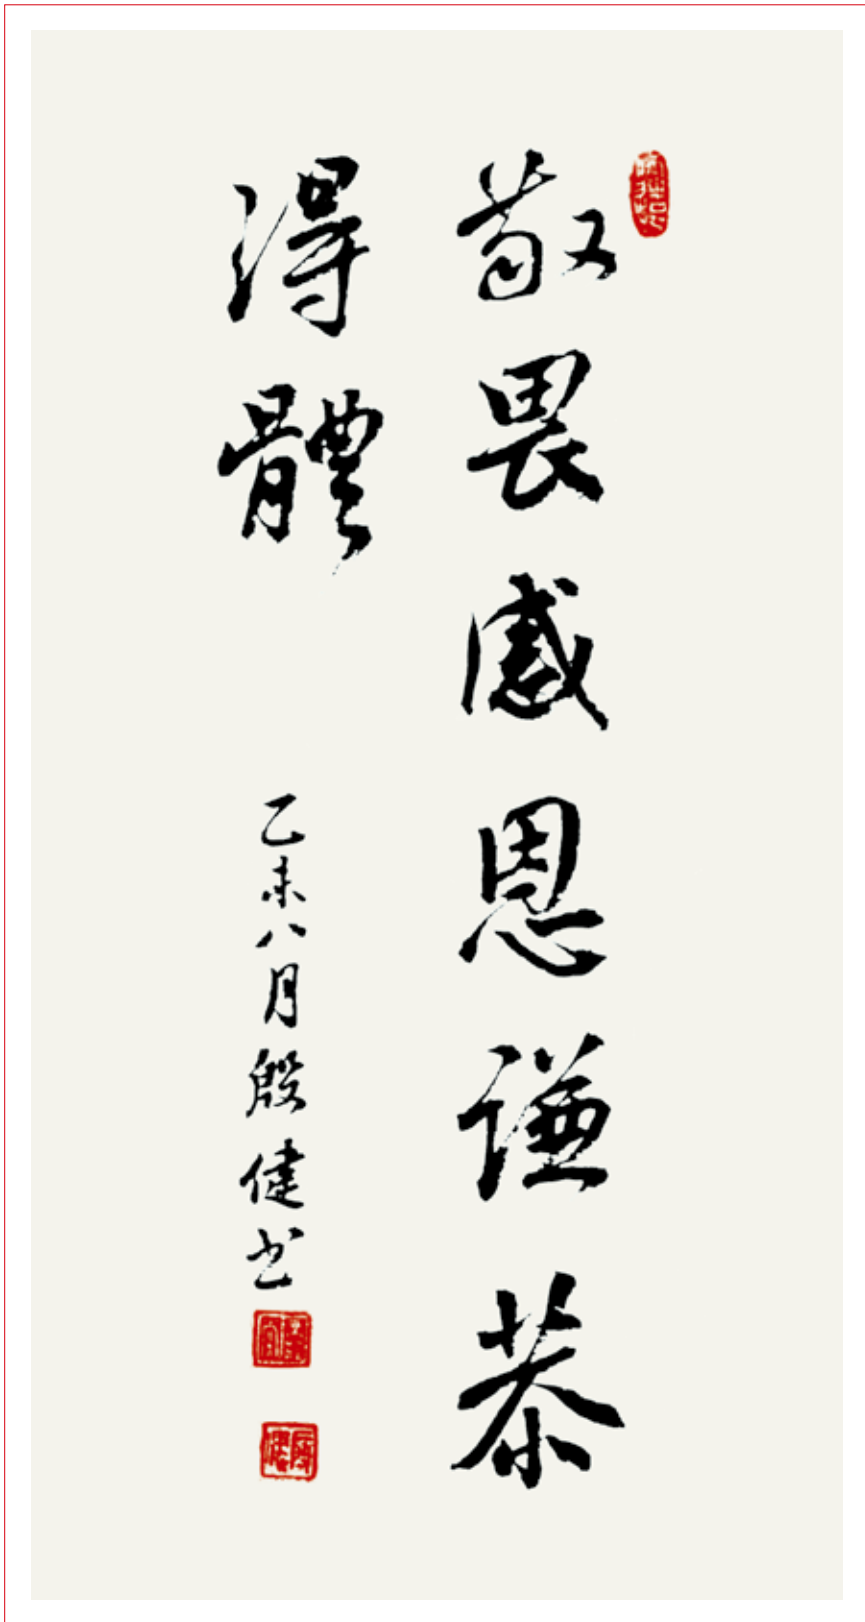 敬畏感恩谦恭
得體
乙未八月殷健书